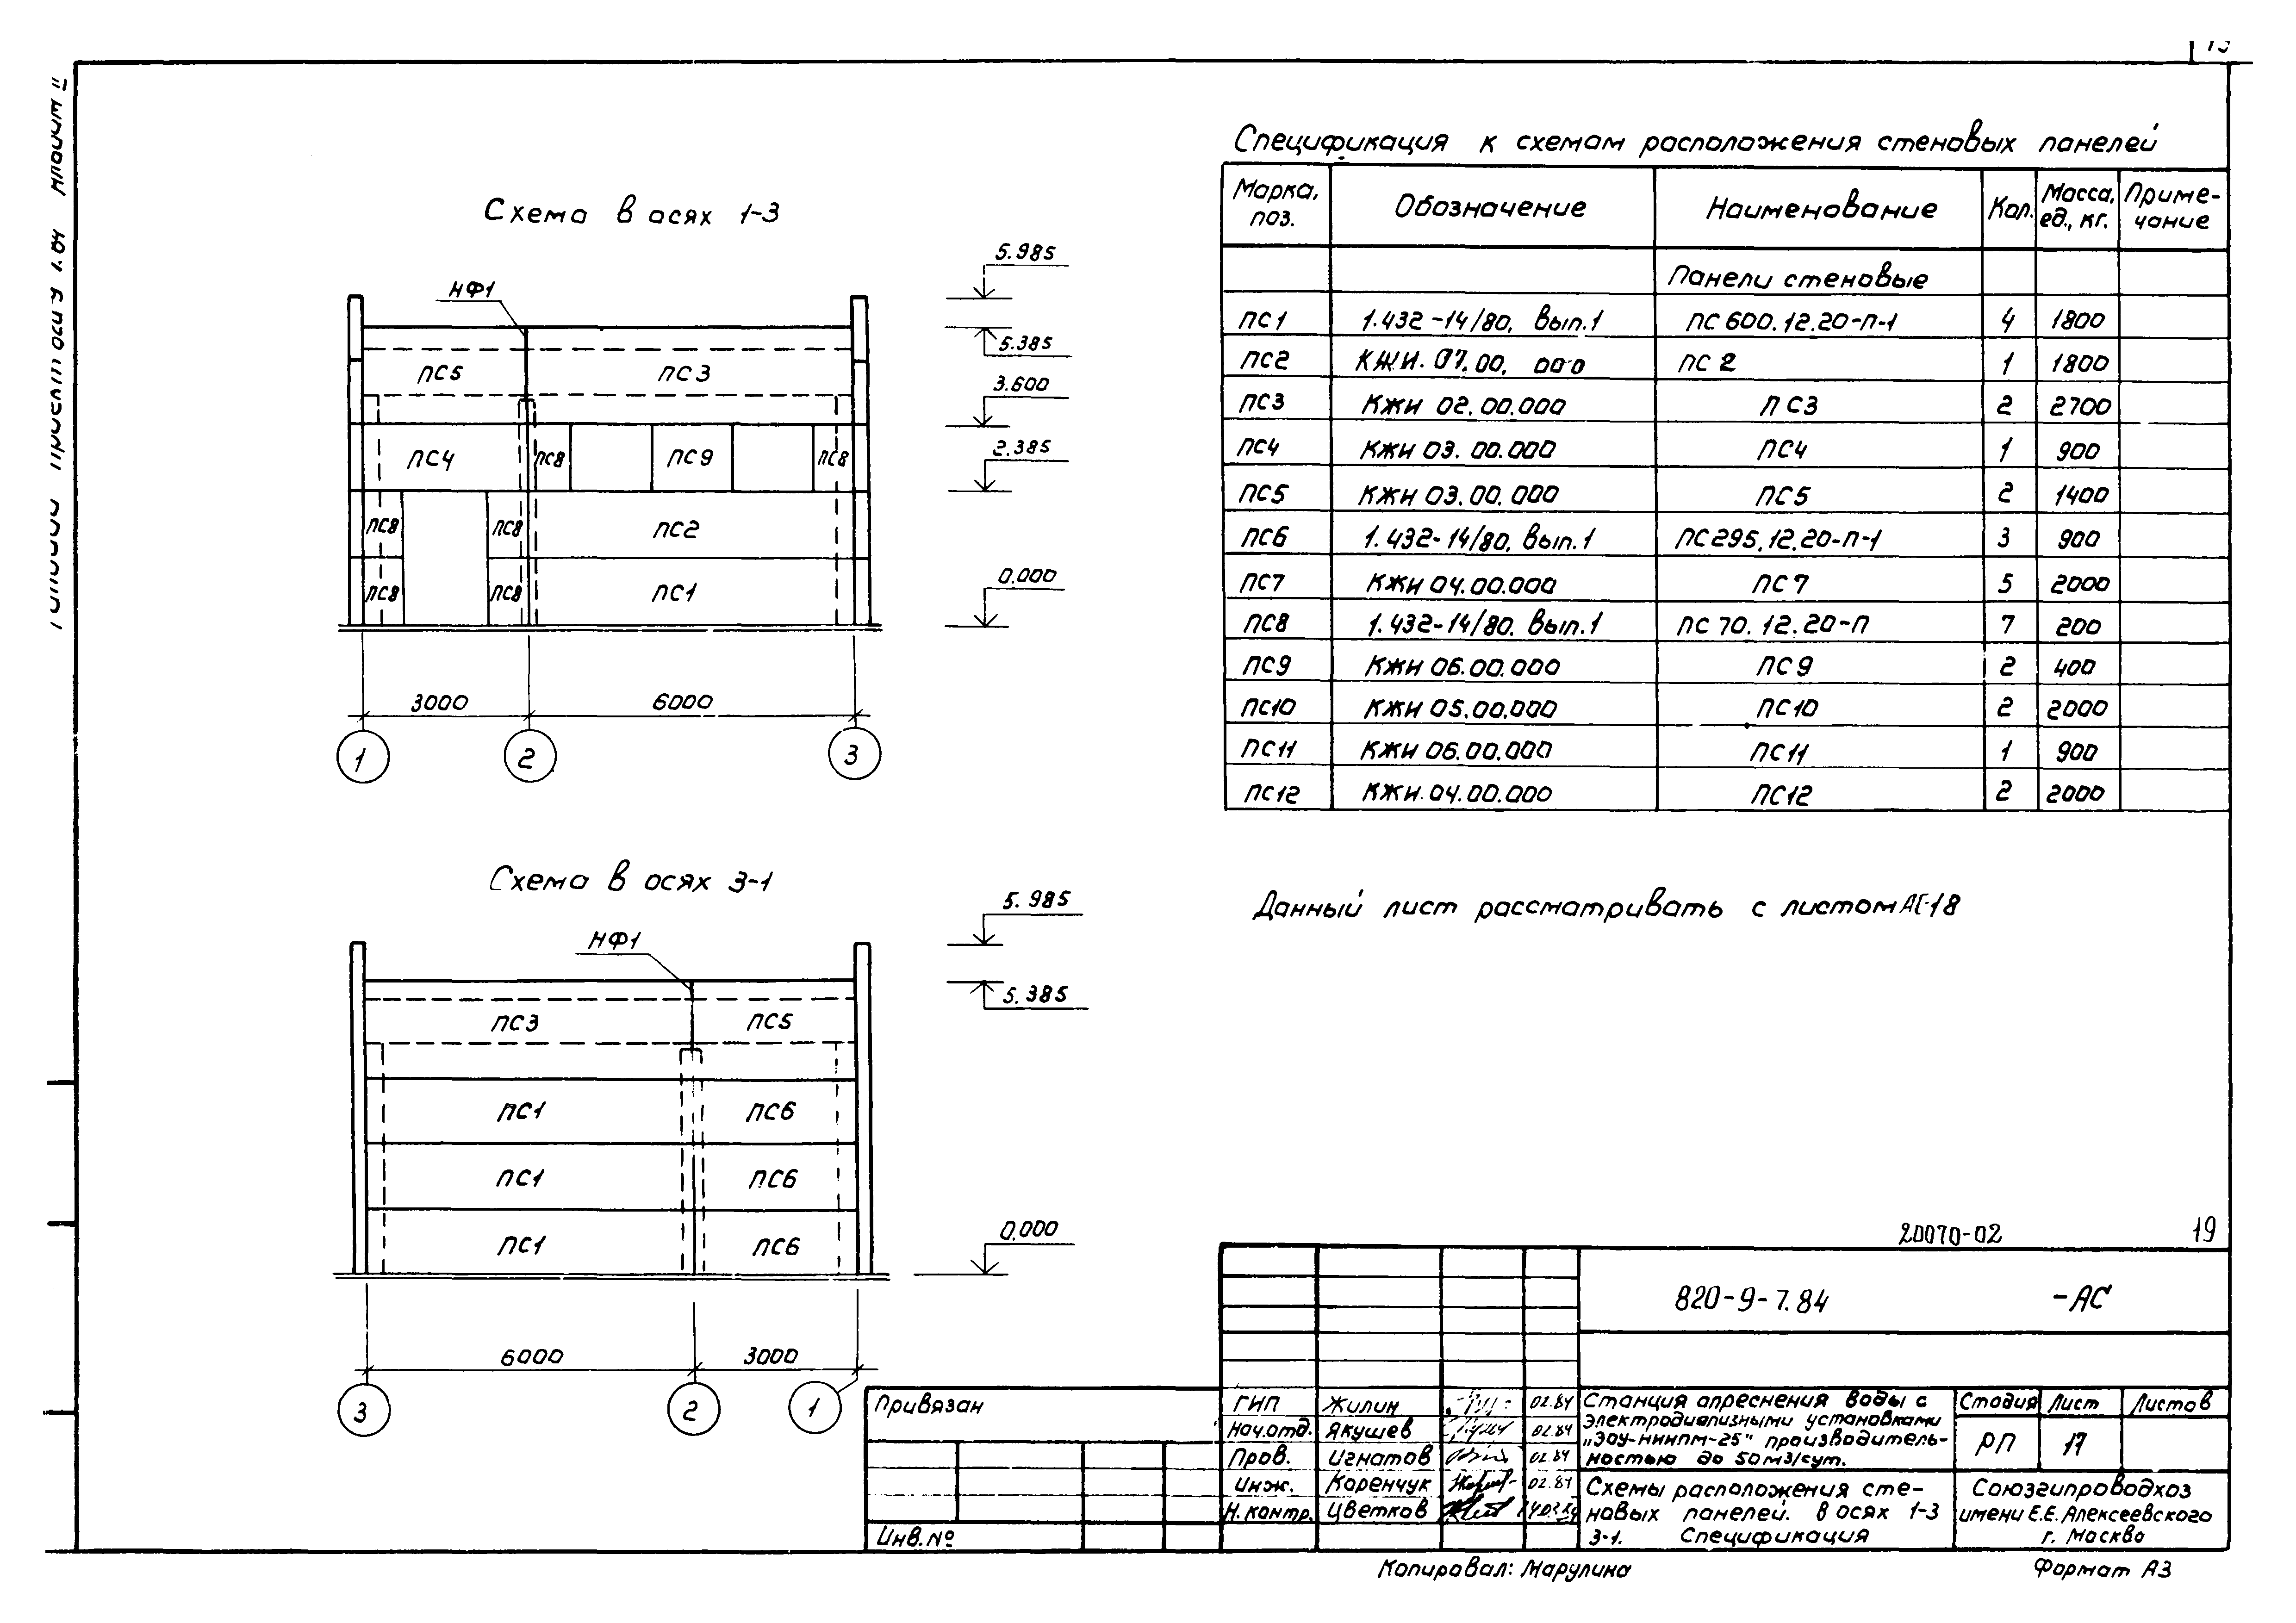 Схема в осях 1-3
НФ1
5.985
5.385
3.600
2.385
0.000
ПС5 ПС3
ПС4 ПС8 ПС9 ПС8
ПС8 ПС8 ПС2
ПС8 ПС8 ПС1
3000 6000
1 2 3
Схема в осях 3-1
НФ1
5.985
5.385
0.000
ПС3 ПС5
ПС1 ПС6
ПС1 ПС6
ПС1 ПС6
6000 3000
3 2 1
Спецификация к схемам расположения стеновых панелей
Марка, поз. Обозначение Наименование Кол. Масса, ед., кг. Приме-чание
Панели стеновые
ПС1 1.432-14/80, Вып.1 ПС 600.12.20-П-1 4 1800
ПС2 КЖИ. 07.00, 000 ПС 2 1 1800
ПС3 КЖИ 02.00.000 ПС3 2 2700
ПС4 КЖИ 03.00.000 ПС4 1 900
ПС5 КЖИ 03.00.000 ПС5 2 1400
ПС6 1.432-14/80, Вып.1 ПС295.12.20-П-1 3 900
ПС7 КЖИ 04.00.000 ПС7 5 2000
ПС8 1.432-14/80. Вып.1 ПС70.12.20-П 7 200
ПС9 КЖИ 06.00.000 ПС9 2 400
ПС10 КЖИ 05.00.000 ПС10 2 2000
ПС11 КЖИ 06.00.000 ПС11 1 900
ПС12 КЖИ.04.00.000 ПС12 2 2000
Данный лист рассматривать с листом АС-18
20070-02 19
820-9-7.84 -АС
Привязан
Инв.№
ГИП Жилин 02.84
Нач.отд. Якушев 02.84
Пров. Игнатов 02.84
Инж. Каренчук 02.84
Н.контр. Цветков
Станция опреснения воды с
электродиализными установками
„ЭОУ-НИИПМ-25" производитель-
ностью до 50м3/сут.
Стадия Лист Листов
РП 17
Схемы расположения сте-
новых панелей. в осях 1-3
3-1. Спецификация
Союзгипроводхоз
имени Е.Е.Алексеевского
г. Москва
Копировал: Марулина
Формат А3